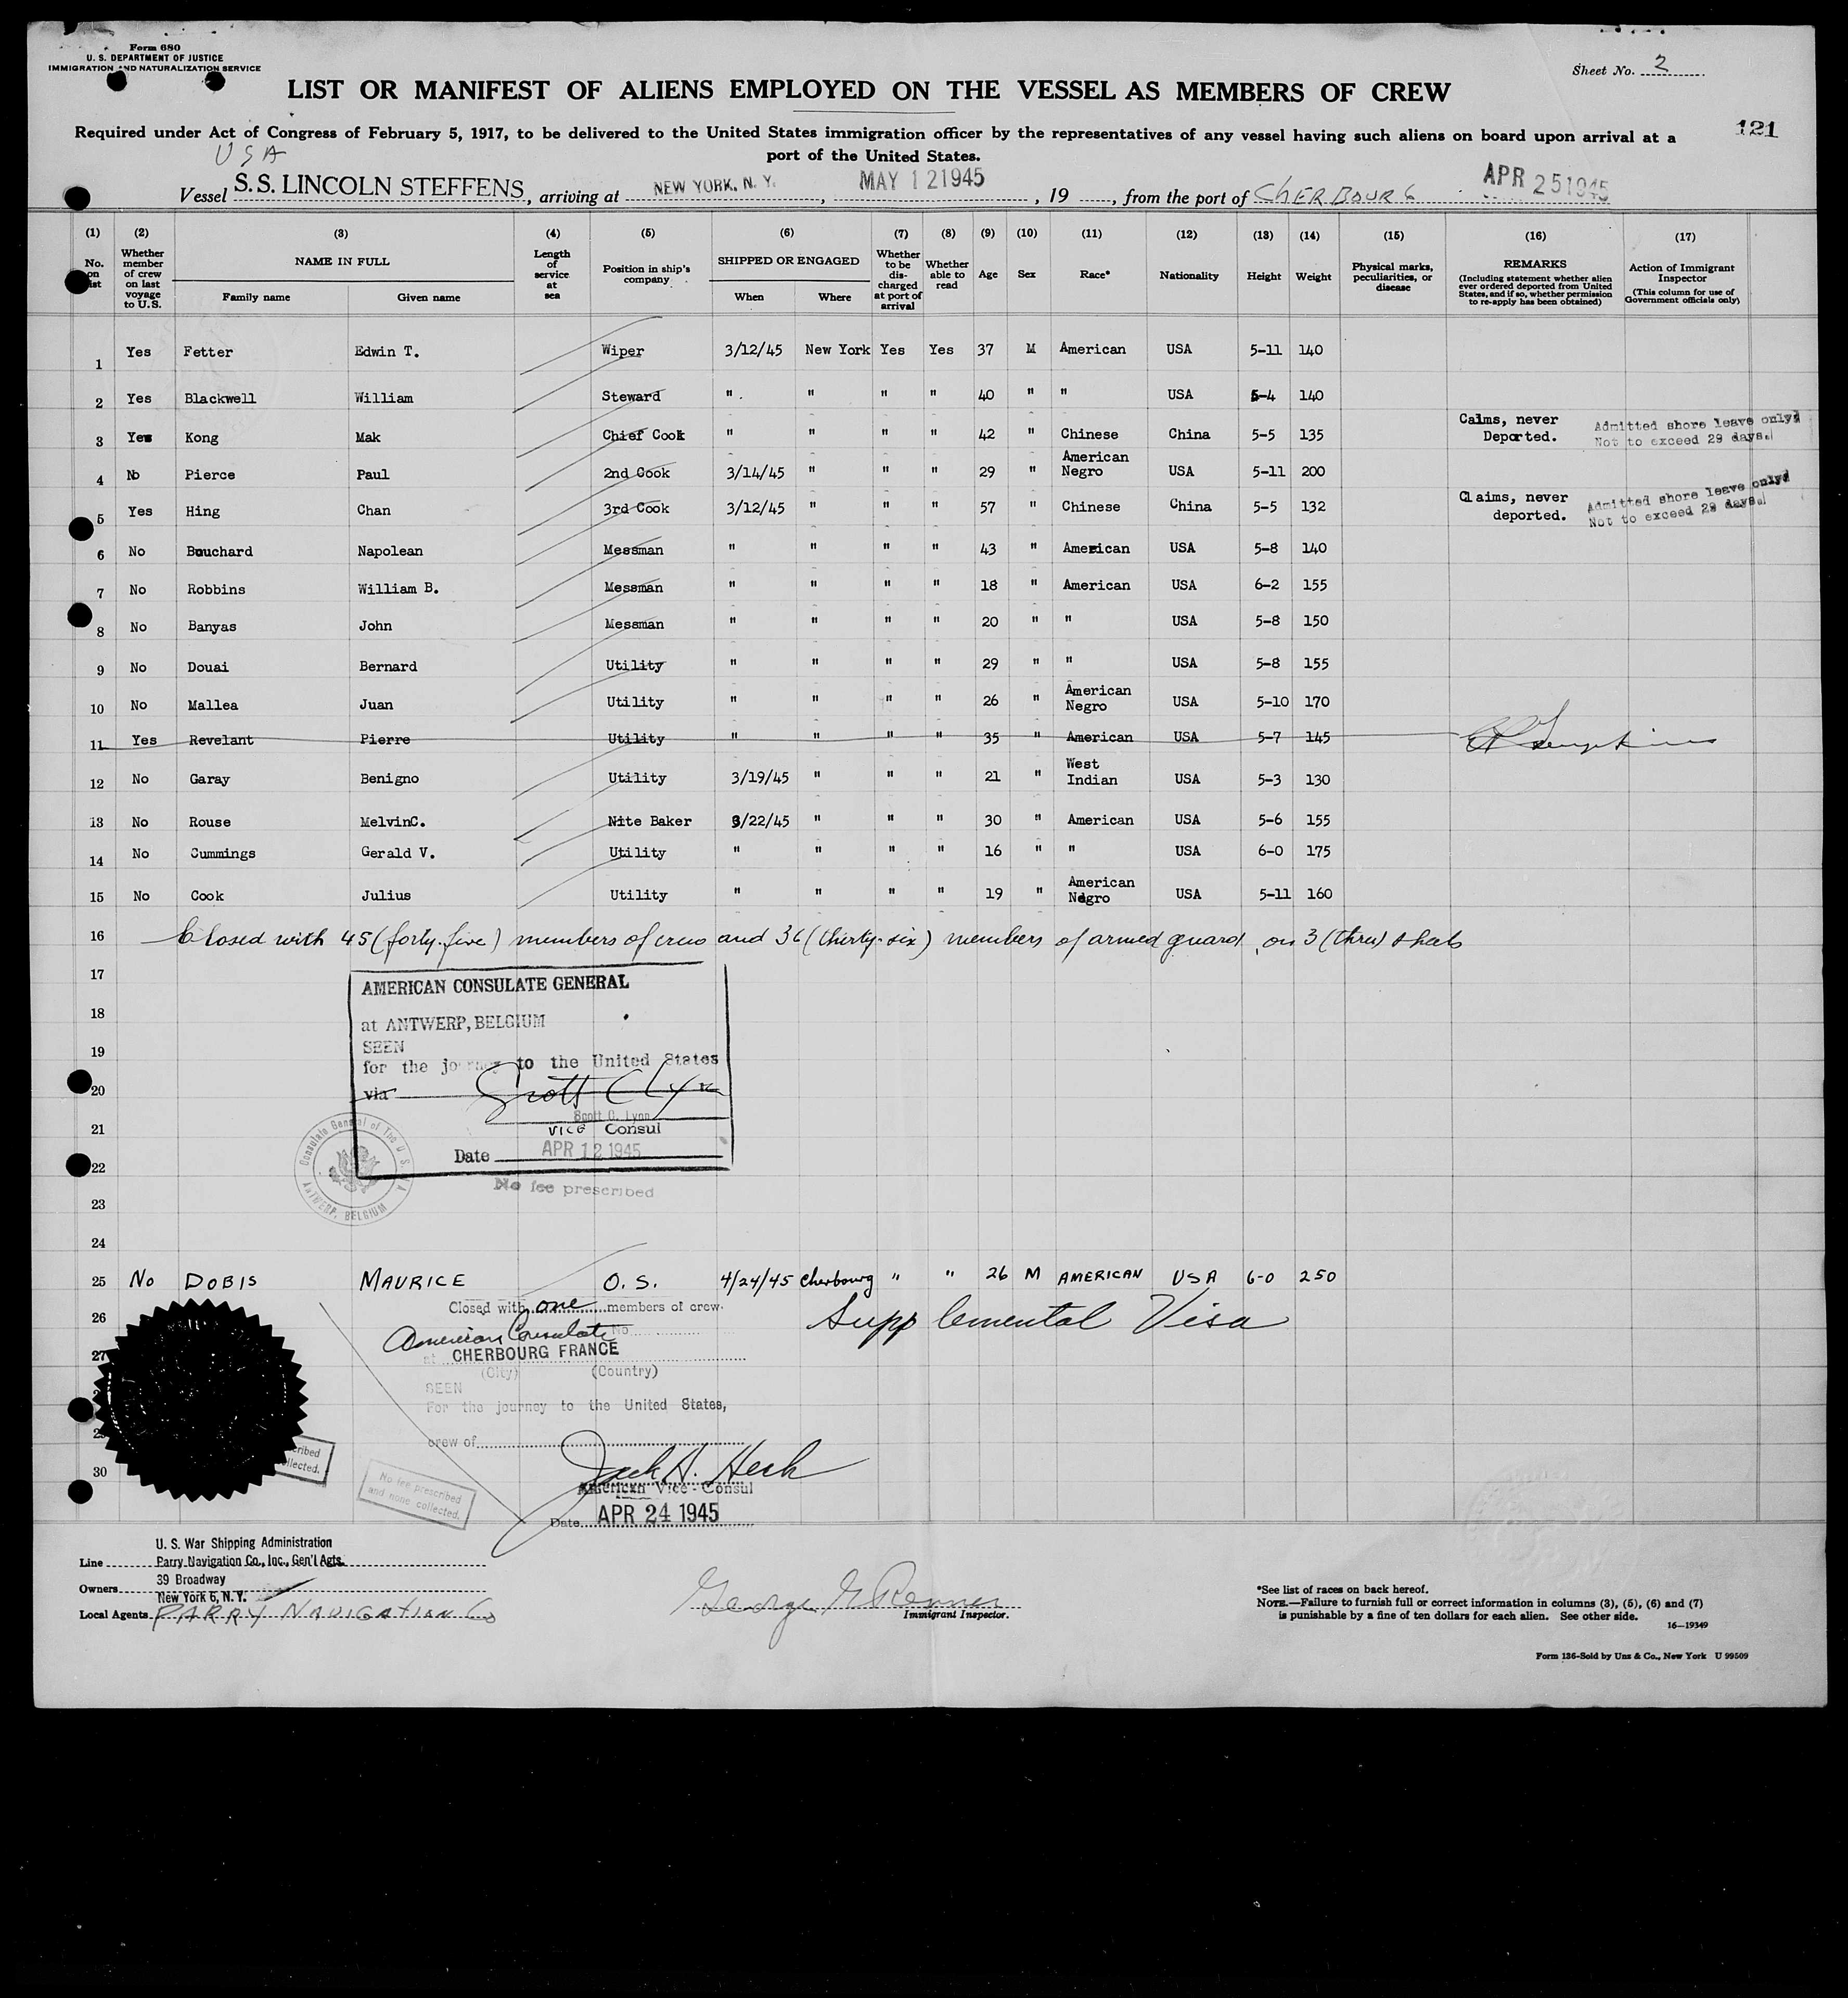 Form 680
U. S. DEPARTMENT OF JUSTICE
IMMIGRATION AND NATURALIZATION SERVICE
Sheet No. 2
LIST OR MANIFEST OF ALIENS EMPLOYED ON THE VESSEL AS MEMBERS OF CREW
121
Required under Act of Congress of February 5, 1917, to be delivered to the United States immigration officer by the representatives of any vessel having such aliens on board upon arrival at a
port of the United States.
USA
Vessel S.S. LINCOLN STEFFENS, arriving at NEW YORK, N. Y., MAY 12 1945, 19 , from the port of CHERBOURG APR 25 1945
(1) No. on list
(2) Whether member of crew on last voyage to U.S.
(3) NAME IN FULL Family name Given name
(4) Length of service at sea
(5) Position in ship's company
(6) SHIPPED OR ENGAGED When Where
(7) Whether to be discharged at port of arrival
(8) Whether able to read
(9) Age
(10) Sex
(11) Race*
(12) Nationality
(13) Height
(14) Weight
(15) Physical marks, peculiarities, or disease
(16) REMARKS (Including statement whether alien ever ordered deported from United States, and if so, whether permission to re-apply has been obtained)
(17) Action of Immigrant Inspector (This column for use of Government officials only)
1 Yes Fetter Edwin T. Wiper 3/12/45 New York Yes Yes 37 M American USA 5-11 140
2 Yes Blackwell William Steward " " " " 40 " " USA 5-4 140
3 Yes Kong Mak Chief Cook " " " " 42 " Chinese China 5-5 135 Caims, never Deported. Admitted shore leave only Not to exceed 29 days.
4 No Pierce Paul 2nd Cook 3/14/45 " " " 29 " American Negro USA 5-11 200
5 Yes Hing Chan 3rd Cook 3/12/45 " " " 57 " Chinese China 5-5 132 Claims, never deported. Admitted shore leave only Not to exceed 29 days.
6 No Bouchard Napolean Messman " " " " 43 " American USA 5-8 140
7 No Robbins William B. Messman " " " " 18 " American USA 6-2 155
8 No Banyas John Messman " " " " 20 " " USA 5-8 150
9 No Douai Bernard Utility " " " " 29 " " USA 5-8 155
10 No Mallea Juan Utility " " " " 26 " American Negro USA 5-10 170
11 Yes Revelant Pierre Utility " " " " 35 " American USA 5-7 145
12 No Garay Benigno Utility 3/19/45 " " " 21 " West Indian USA 5-3 130
13 No Rouse MelvinC. Nite Baker 3/22/45 " " " 30 " American USA 5-6 155
14 No Cummings Gerald V. Utility " " " " 16 " " USA 6-0 175
15 No Cook Julius Utility " " " " 19 " American Negro USA 5-11 160
16 Closed with 45 (forty-five) members of crew and 36 (thirty-six) members of armed guard, on 3 (three) sheets
17
AMERICAN CONSULATE GENERAL
18
at ANTWERP, BELGIUM
SEEN
19
for the journey to the United States
20
via Scott C Lynn
Scott C. Lynn
21
VICE Consul
Date APR 12 1945
22
Consulate General of The U.S.A. ANTWERP, BELGIUM
No fee prescribed
23
24
25 No DOBIS MAURICE O. S. 4/24/45 Cherbourg " " 26 M AMERICAN USA 6-0 250
Closed with one members of crew.
26
Supplemental Visa
American Consulate No.
27
at CHERBOURG FRANCE
(City) (Country)
SEEN
For the journey to the United States,
crew of
30
Jack A. Herh
American Vice-Consul
Date APR 24 1945
No fee prescribed
and none collected.
Line U. S. War Shipping Administration
Parry Navigation Co., Inc., Gen'l Agts.
Owners 39 Broadway
New York 6, N. Y.
Local Agents PARRY NAVIGATION Co
George G Renner
Immigrant Inspector.
*See list of races on back hereof.
NOTE.—Failure to furnish full or correct information in columns (3), (5), (6) and (7)
is punishable by a fine of ten dollars for each alien. See other side.
16—19349
Form 136-Sold by Unz & Co., New York U 99509